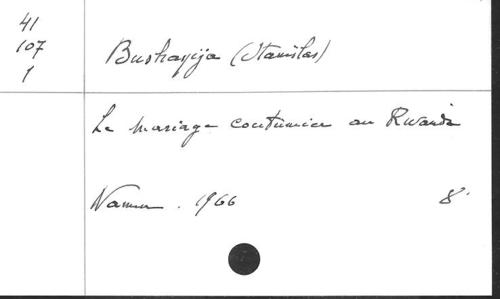 41
107
1
Bushayija (Stanislas)
Le mariage coutumier au Rwanda
Namur. 1966 8°